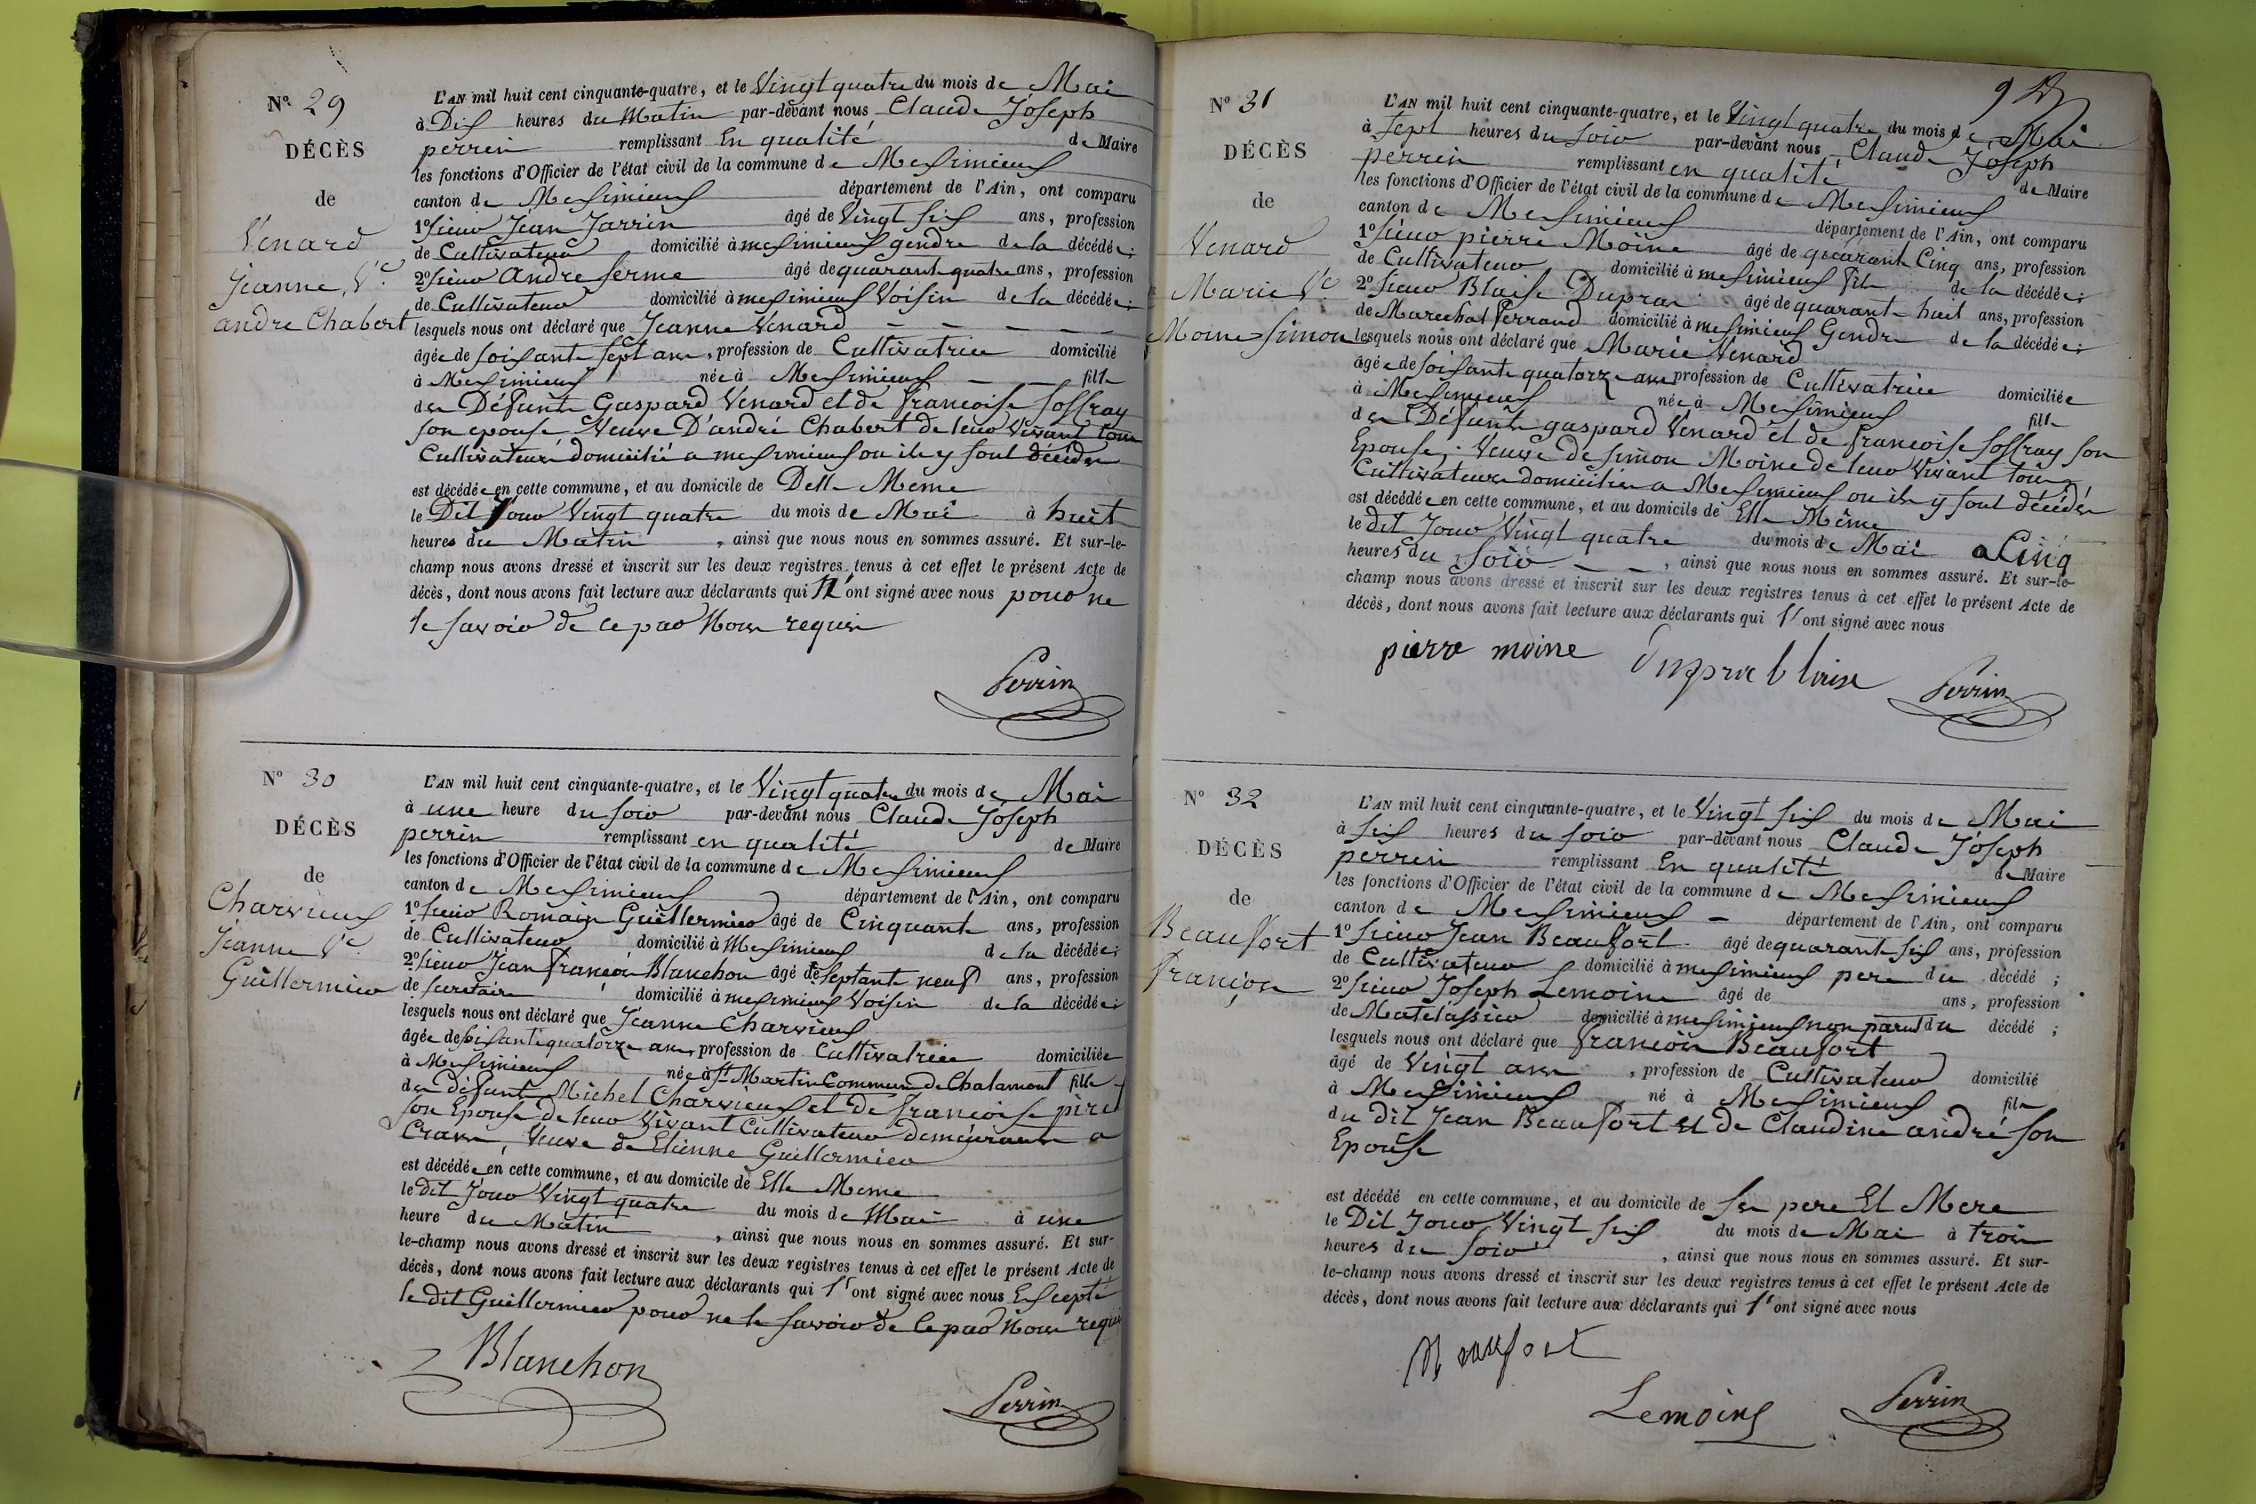 Nº 29
DÉCÈS
de
Venard
Jeanne, Ve
andre Chabert
L'AN mil huit cent cinquante-quatre, et le Vingt quatre du mois de Mai
à Dix heures du Matin par-devant nous Claude Joseph
perrin remplissant En qualité de Maire
les fonctions d'Officier de l'état civil de la commune de Meximieux
canton de Meximieux département de l'Ain, ont comparu
1º Sieur Jean Jarrin âgé de Vingt Six ans, profession
de Cultivateur domicilié à meximieux gendre de la décédée;
2º Sieur Andre ferme âgé de quarante quatre ans, profession
de Cultivateur domicilié à meximieux Voisin de la décédée;
lesquels nous ont déclaré que Jeanne Venard
âgée de Soixante Sept ans, profession de Cultivatrice domicilié
à Meximieux née à Meximieux fille
des Défunts Gaspard Venard et de francoise Soffray
son epouse Veuve D'andré Chabert de leur Vivant tous
Cultivateurs domicilié a meximieux ou ils y sont décédés
est décédée en cette commune, et au domicile de Delle Meme
le Dit Jour Vingt quatre du mois de Mai à huit
heures du Matin, ainsi que nous nous en sommes assuré. Et sur-le-
champ nous avons dressé et inscrit sur les deux registres tenus à cet effet le présent Acte de
décès, dont nous avons fait lecture aux déclarants qui N'ont signé avec nous pour ne
le savoir de ce par Nous requis
Perrin
Nº 30
DÉCÈS
de
Charvieux
Jeanne Ve
Guillermier
L'AN mil huit cent cinquante-quatre, et le Vingt quatre du mois de Mai
à une heure du soir par-devant nous Claude Joseph
perrin remplissant en qualité de Maire
les fonctions d'Officier de l'état civil de la commune de Meximieux
canton de Meximieux département de l'Ain, ont comparu
1º Sieur Romain Guillermier âgé de Cinquante ans, profession
de Cultivateur domicilié à Meximieux de la décédée;
2º Sieur Jean François Blanchon âgé de Septante neuf ans, profession
de domicilié à meximieux Voisin de la décédée;
lesquels nous ont déclaré que Jeanne Charvieux
âgée de Soixante quatorze ans, profession de Cultivatrice domiciliée
à Meximieux née à St Martin Commune de Chalamont fille
des défunt Michel Charvieux et de francoise
son Epouse de leur Vivant Cultivateur demeurants a
Crans, Veuve de Etienne Guillermier
est décédée en cette commune, et au domicile de Elle Meme
le dit Jour Vingt quatre du mois de Mai à une
heure du Matin, ainsi que nous nous en sommes assuré. Et sur-
le-champ nous avons dressé et inscrit sur les deux registres tenus à cet effet le présent Acte de
décès, dont nous avons fait lecture aux déclarants qui l'ont signé avec nous Excepté
le dit Guillermier pour ne le savoir de ce par Nous requis
Blanchon
Perrin
Nº 31
DÉCÈS
de
Venard
Marie Ve
Moine Simon
L'AN mil huit cent cinquante-quatre, et le Vingt quatre du mois de Mai
à Sept heures du Soir par-devant nous Claude Joseph
perrin remplissant en qualité de Maire
les fonctions d'Officier de l'état civil de la commune de Meximieux
canton de Meximieux département de l'Ain, ont comparu
1º Sieur pierre Moine âgé de quarante Cinq ans, profession
de Cultivateur domicilié à meximieux fils de la décédée;
2º Sieur Blaise Duprat âgé de quarante huit ans, profession
de Marechal Ferrand domicilié à meximieux Gendre de la décédée;
lesquels nous ont déclaré que Marie Venard
âgée de Soixante quatorze ans profession de Cultivatrice domiciliée
à Meximieux née à Meximieux fille
des Défunts gaspard Venard et de francoise Soffray Son
Epouse; Veuve de Simon Moine de leur Vivant tous
Cultivateurs domiciliés a Meximieux ou ils y sont décédés
est décédée en cette commune, et au domicile de Elle Même
le dit Jour Vingt quatre du mois de Mai a Cinq
heures du Soir, ainsi que nous nous en sommes assuré. Et sur-le-
champ nous avons dressé et inscrit sur les deux registres tenus à cet effet le présent Acte de
décès, dont nous avons fait lecture aux déclarants qui l'ont signé avec nous
pierre moine Duprat blaise Perrin
Nº 32
DÉCÈS
de
Beaufort
François
L'AN mil huit cent cinquante-quatre, et le Vingt Six du mois de Mai
à Six heures du soir par-devant nous Claude Joseph
perrin remplissant En qualité de Maire
les fonctions d'Officier de l'état civil de la commune de Meximieux
canton de Meximieux département de l'Ain, ont comparu
1º Sieur Jean Beaufort âgé de quarante Six ans, profession
de Cultivateur domicilié à meximieux pere du décédé;
2º Sieur Joseph Lemoine âgé de ans, profession
de Matelassier domicilié à meximieux non parent du décédé;
lesquels nous ont déclaré que François Beaufort
âgé de Vingt ans, profession de Cultivateur domicilié
à Meximieux né à Meximieux fils
du dit Jean Beaufort et de Claudine andré son
Epouse
est décédé en cette commune, et au domicile de Ses pere Et Mere
le Dit Jour Vingt Six du mois de Mai à trois
heures du Soir, ainsi que nous nous en sommes assuré. Et sur-
le-champ nous avons dressé et inscrit sur les deux registres tenus à cet effet le présent Acte de
décès, dont nous avons fait lecture aux déclarants qui l'ont signé avec nous
Beaufort
Lemoine Perrin